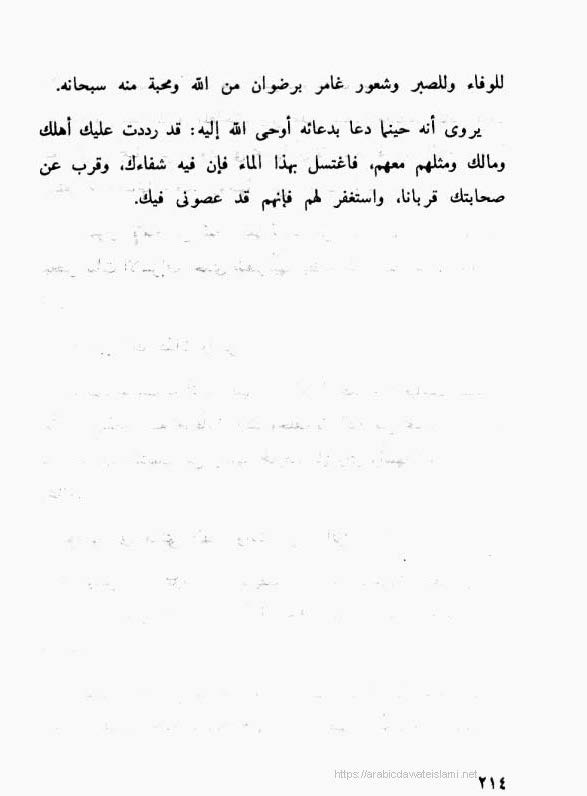 للوفاء وللصبر وشعور غامر برضوان من الله ومحبة منه سبحانه.
يروى أنه حينما دعا بدعائه أوحى الله إليه: قد رددت عليك أهلك
ومالك ومثلهم معهم، فاغتسل بهذا الماء فإن فيه شفاءك، وقرب عن
صحابتك قربانا، واستغفر لهم فإنهم قد عصونى فيك.
https://arabicdawateislami.net
٢١٤